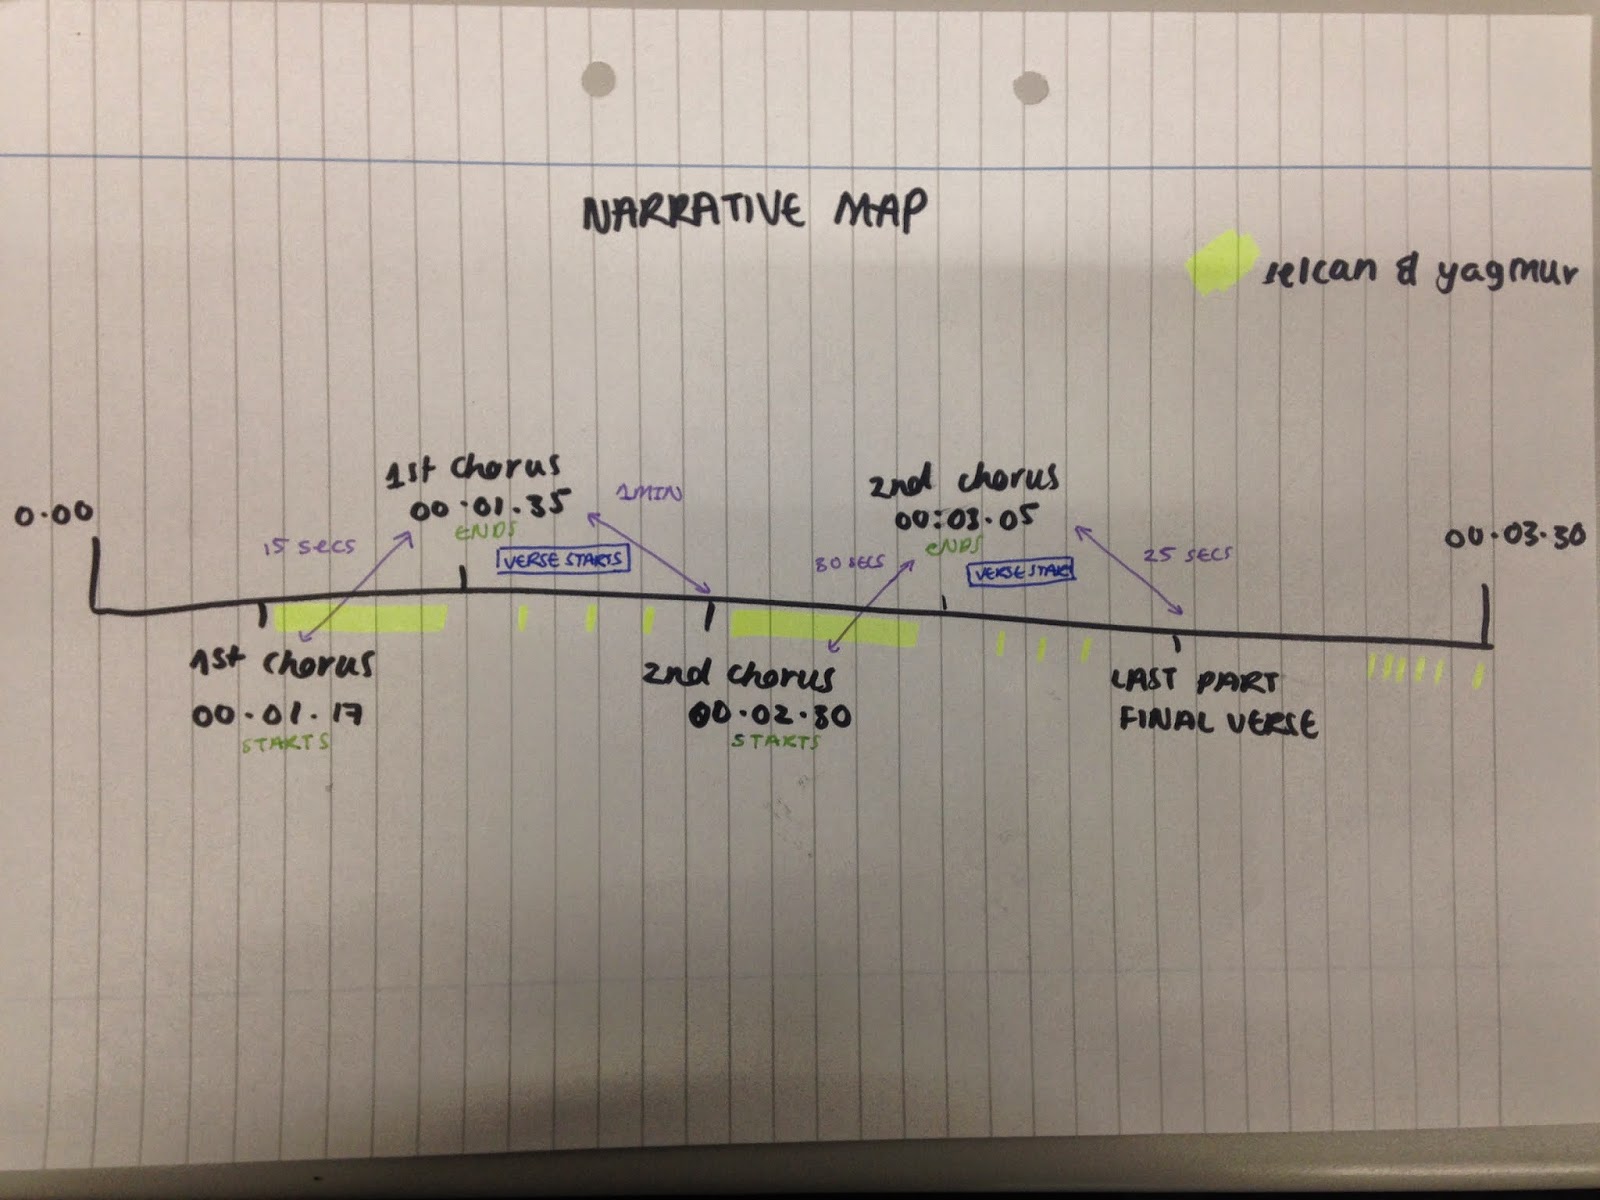 NARRATIVE MAP
selcan & yagmur
0.00
1st chorus
00.01.35
ENDS
15 secs
1MIN
VERSE STARTS
2nd chorus
00:03.05
ENDS
30 SECS
VERSE STAR
25 SECS
00.03.30
1st chorus
00.01.17
STARTS
2nd chorus
00.02.30
STARTS
LAST PART
FINAL VERSE